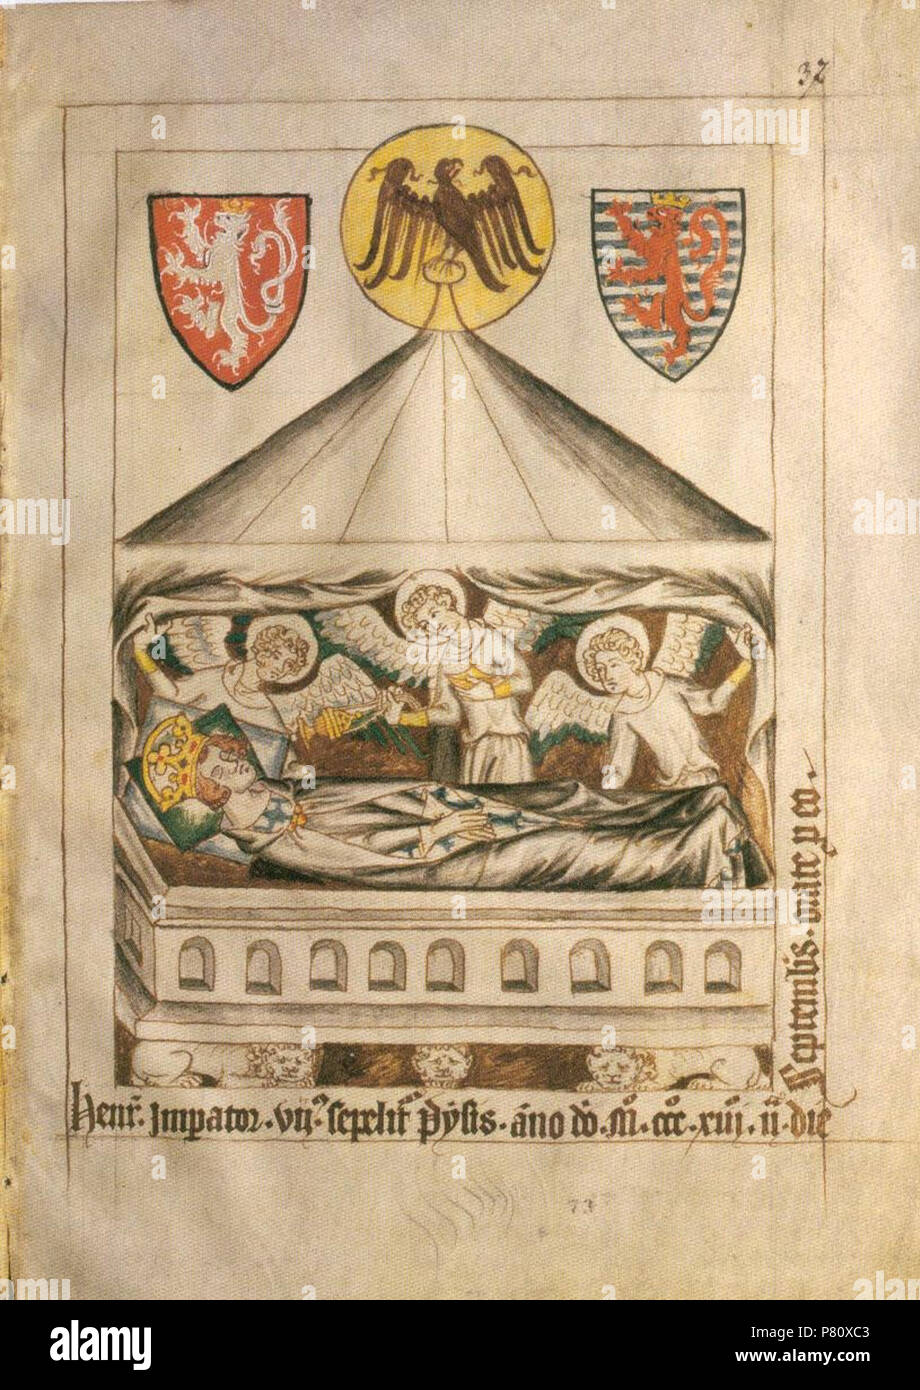 32
Henr. Imperator. vij. sepelit Pysis. año do. M. ccc. xiij. ij. die
Septembris. orate p eo.
73
alamy
a
alamy stock photo
Image ID: P80XC3
www.alamy.com